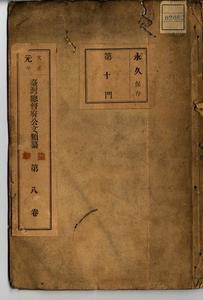 永久保存
第十門
大正
元年
臺灣總督府公文類纂
第八卷